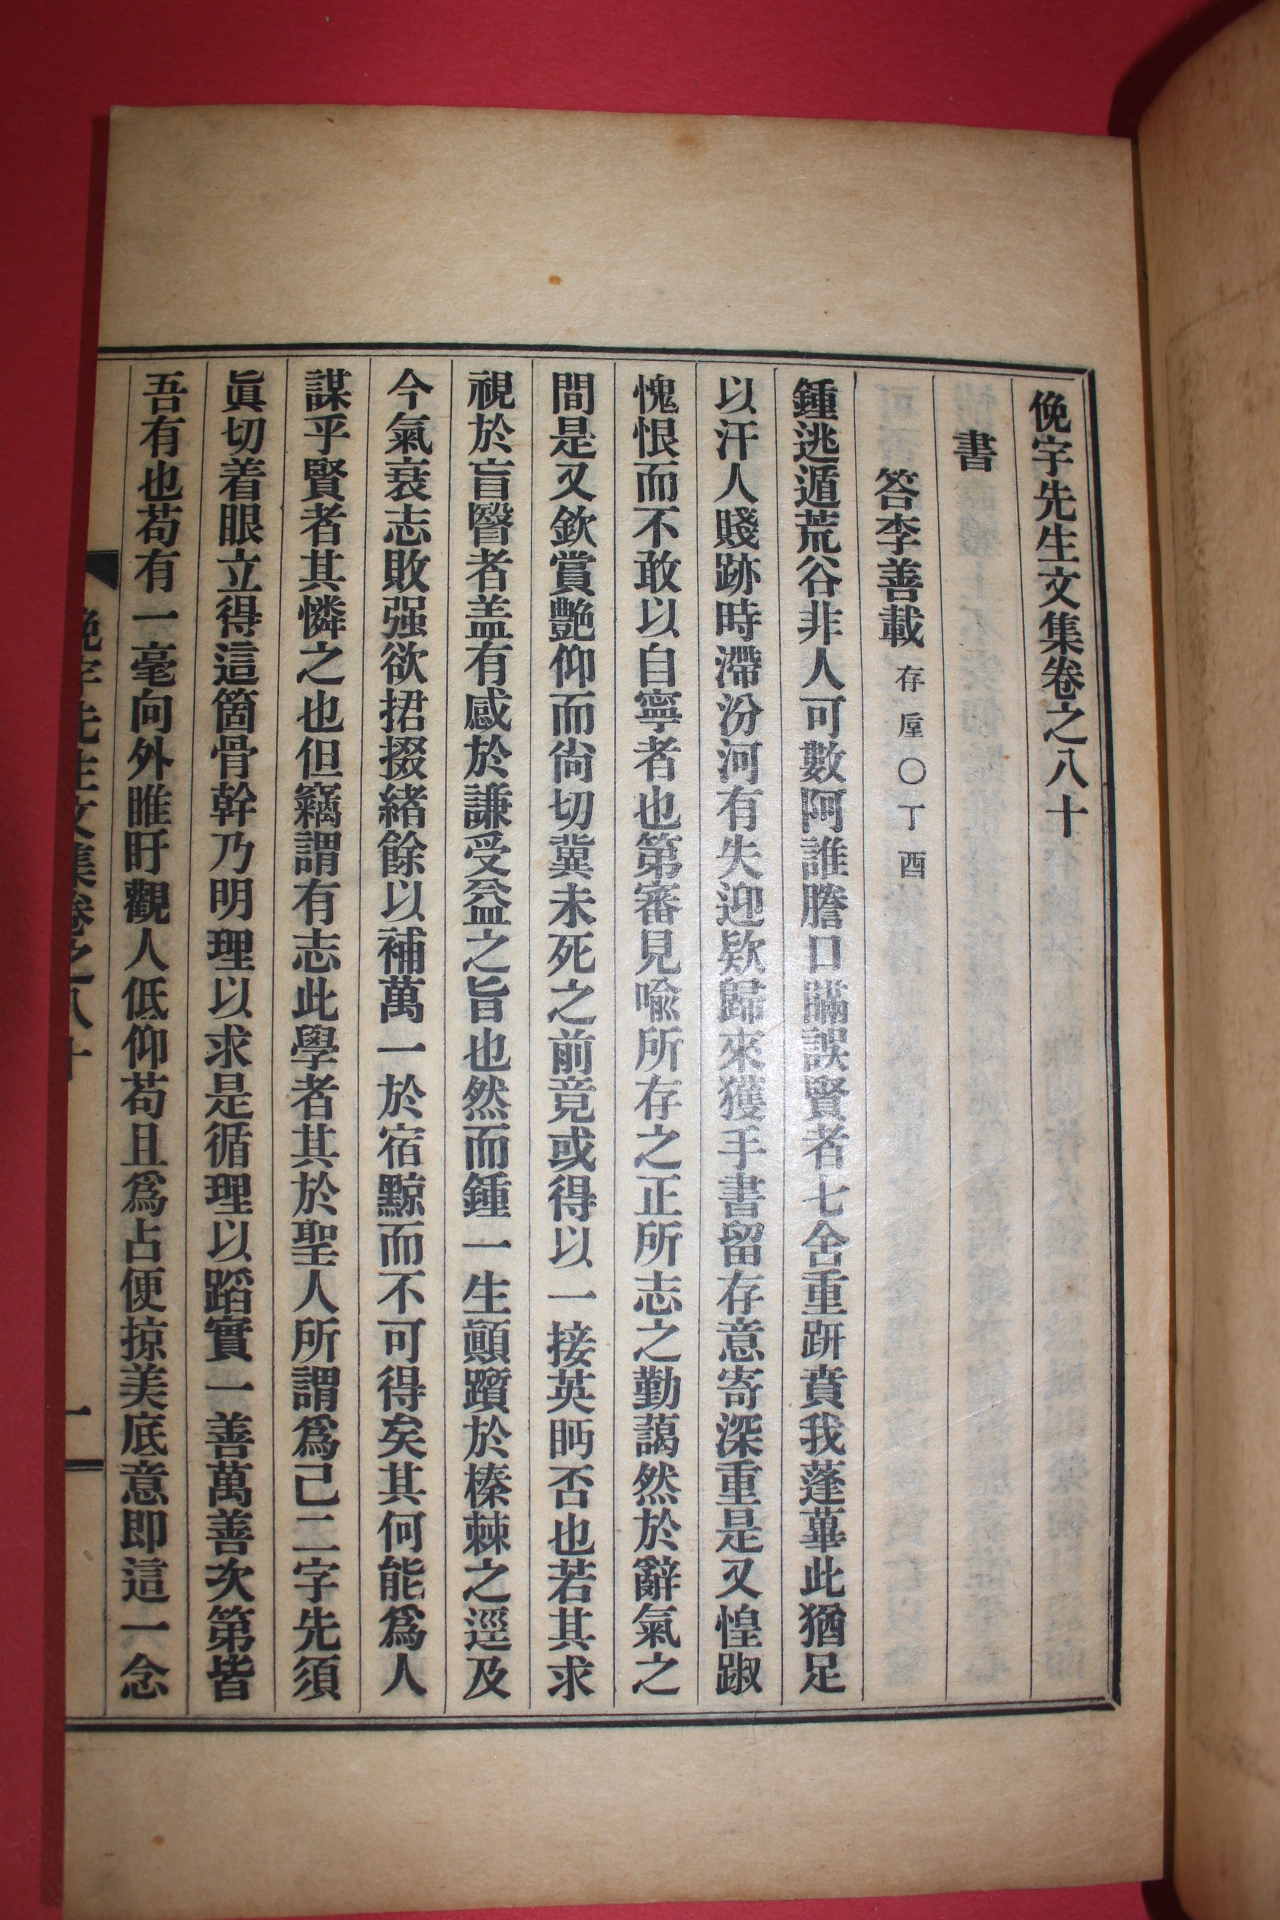 俛宇先生文集卷之八十
書
答李善載存垕○丁酉
鍾逃遁荒谷非人可數阿誰謄口瞞誤賢者七舍重趼賁我蓬蓽此猶足
以汗人賤跡時滯汾河有失迎欵歸來獲手書留存意寄深重是又惶踧
愧恨而不敢以自寧者也第審見喩所存之正所志之勤藹然於辭氣之
間是又欽賞艶仰而尙切冀未死之前竟或得以一接英眄否也若其求
視於盲瞖者盖有感於謙受益之旨也然而鍾一生顚躓於榛棘之逕及
今氣衰志敗强欲捃掇緖餘以補萬一於宿黥而不可得矣其何能爲人
謀乎賢者其憐之也但竊謂有志此學者其於聖人所謂爲己二字先須
眞切着眼立得這箇骨幹乃明理以求是循理以蹈實一善萬善次第皆
吾有也苟有一毫向外睢盱觀人低仰苟且爲占便掠美底意即這一念
俛宇先生文集卷之八十 一